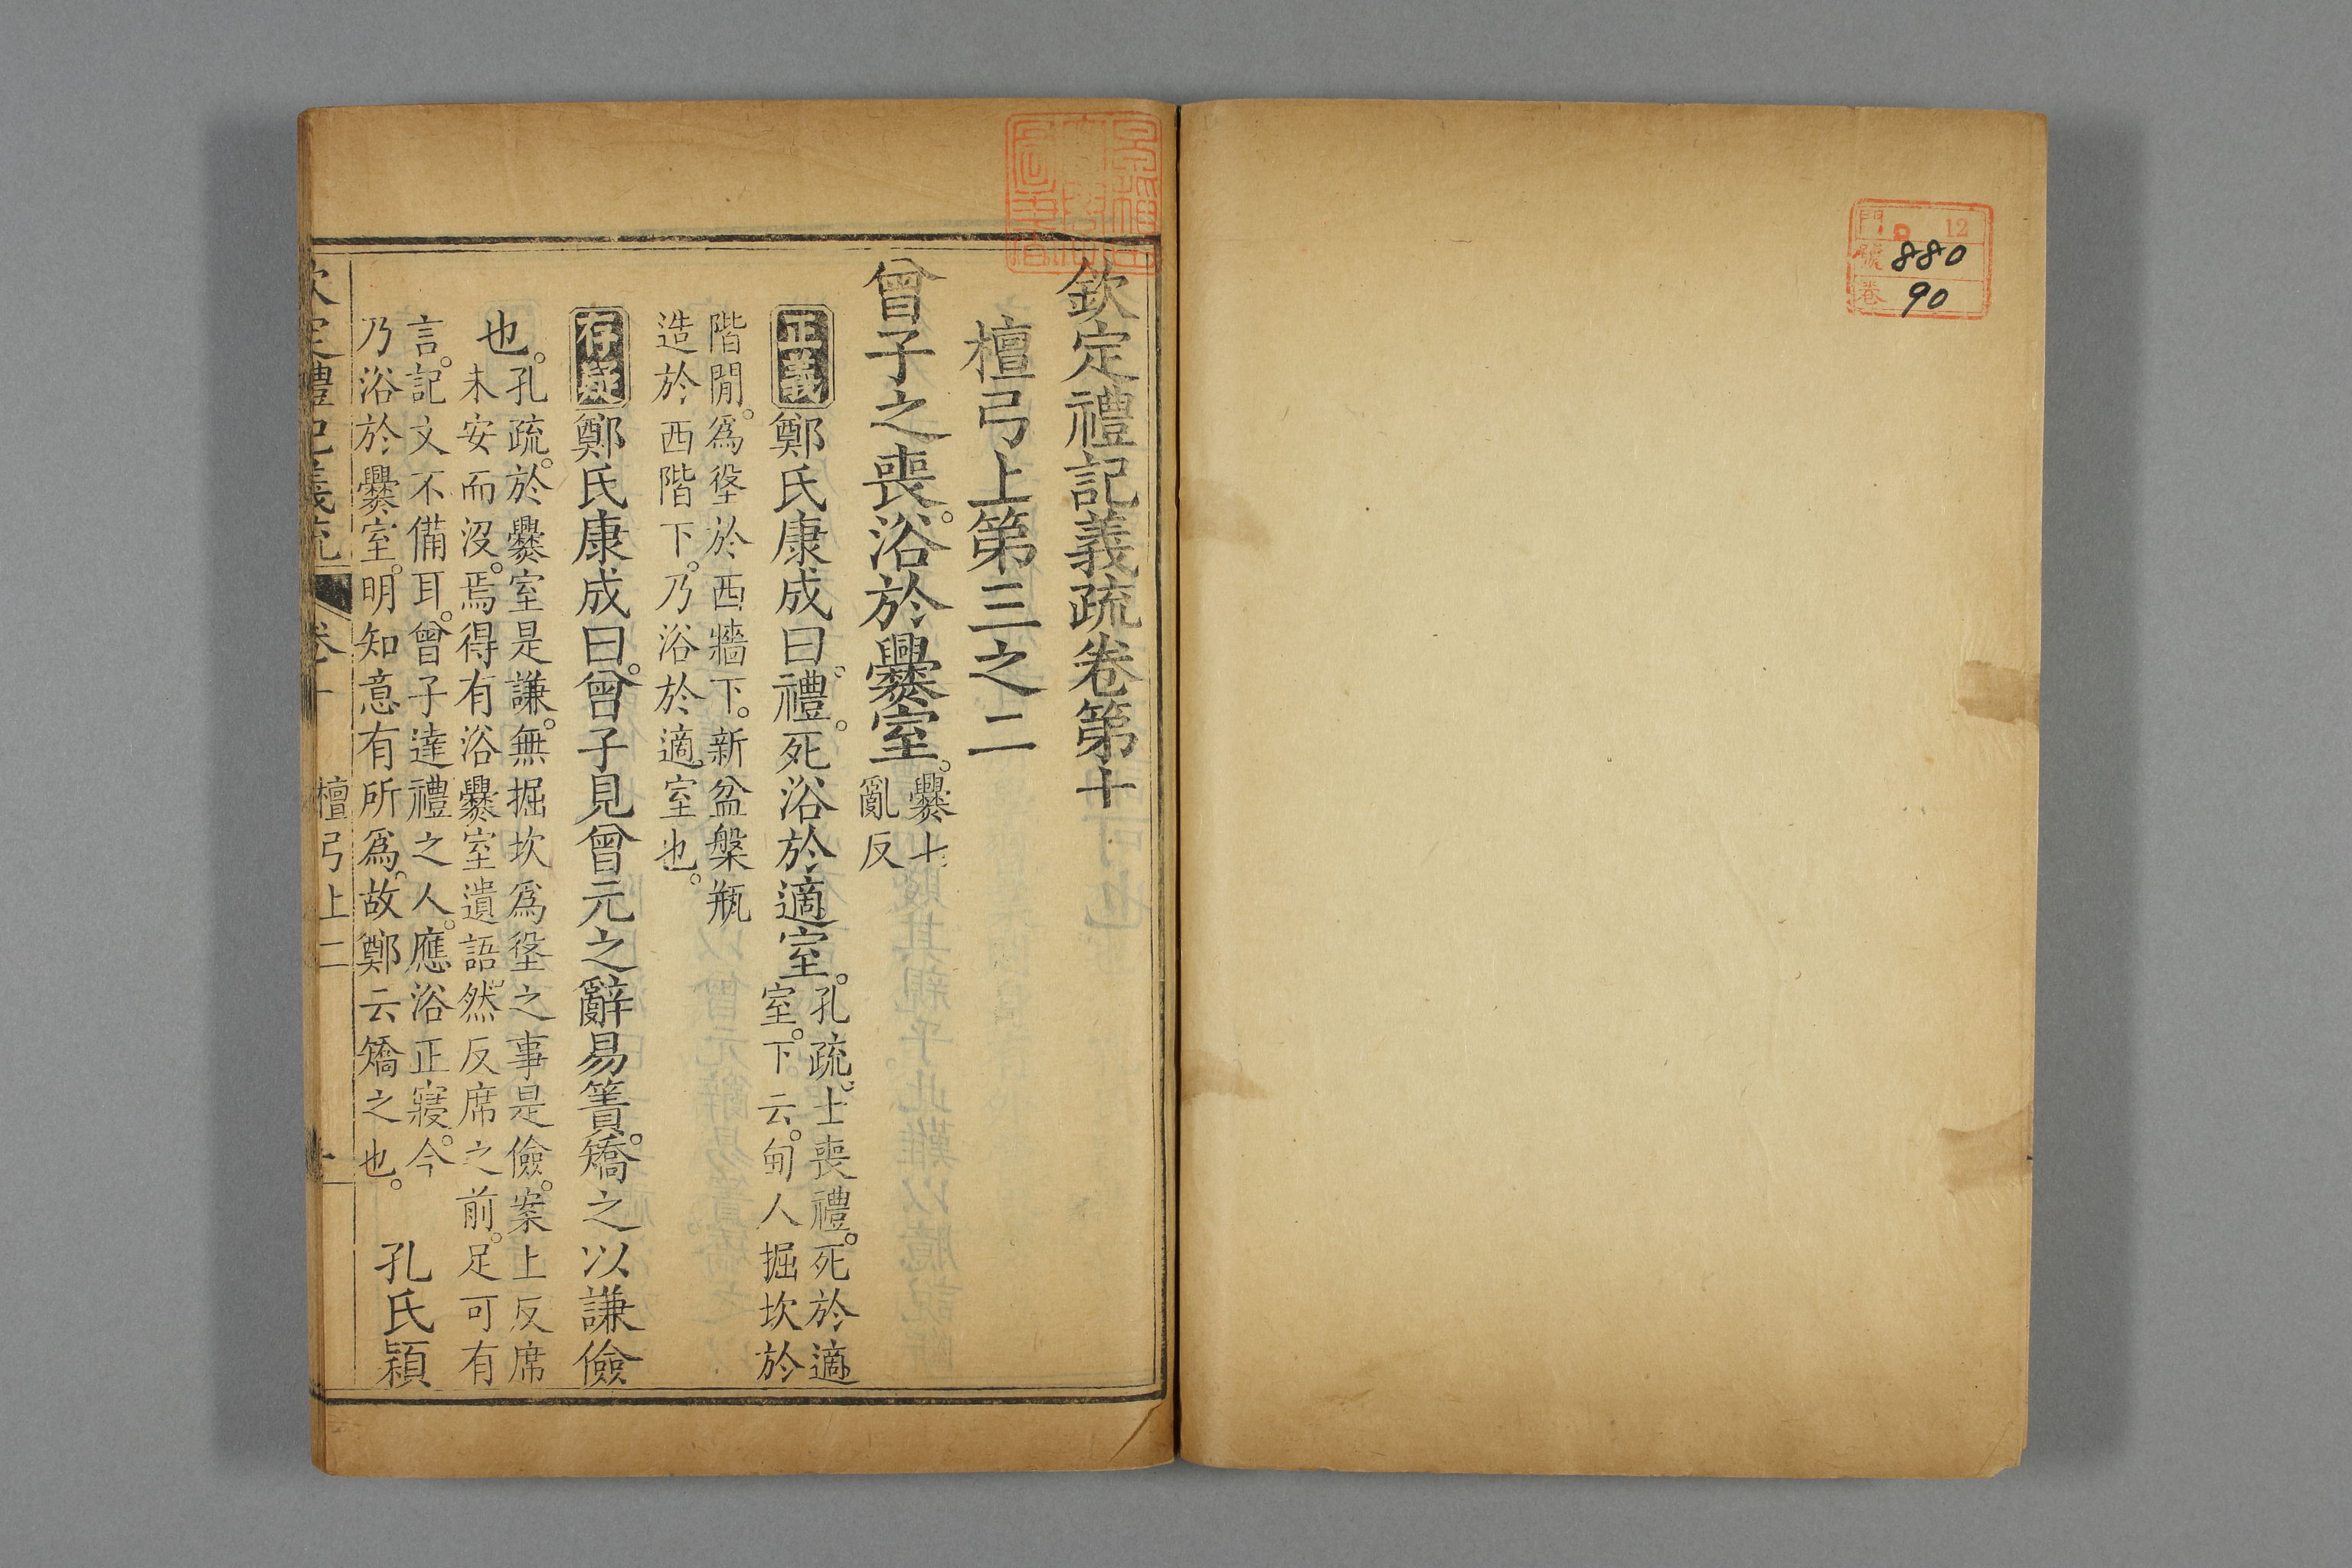 門 12
號 880
卷 90
欽定禮記義疏卷第十
檀弓上第三之二
曾子之喪。浴於爨室。爨七
亂反
正義鄭氏康成曰。禮。死浴於適室。孔疏。士喪禮。死於適
室。下云。甸人掘坎於
階閒。爲垼於西牆下。新盆槃瓶
造於西階下。乃浴於適室也。
存疑鄭氏康成曰。曾子見曾元之辭易簀。矯之以謙儉
也。孔疏。於爨室是謙。無掘坎爲垼之事是儉。案上反席
未安而沒。焉得有浴爨室遺語。然反席之前。足可有
言。記文不備耳。曾子達禮之人。應浴正寢。今
乃浴於爨室。明知意有所爲。故鄭云矯之也。
孔氏穎
欽定禮記義疏 卷十 檀弓上二